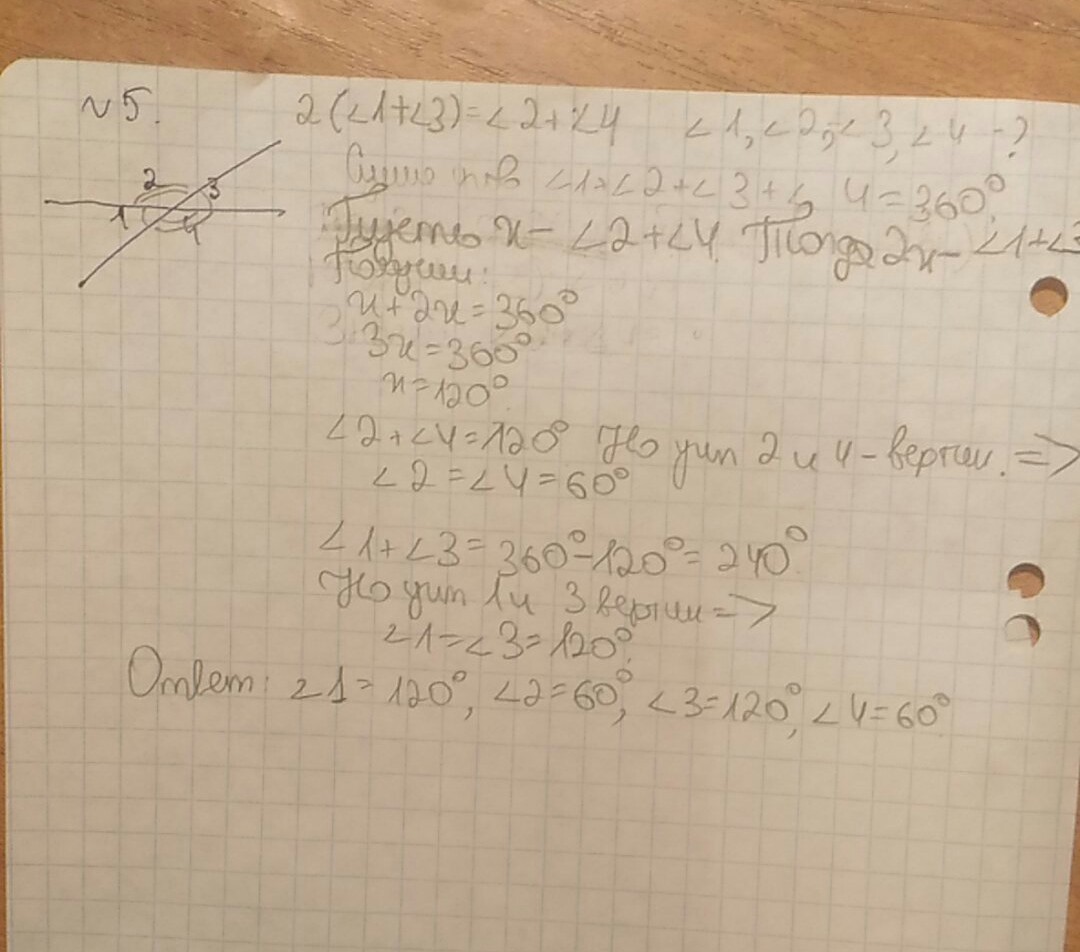 №5. 2(∠1+∠3)=∠2+∠4 ∠1,∠2,∠3,∠4-?
2 3
1 4
∠1+∠2+∠3+∠4=360°.
Пусть x-∠2+∠4. Тогда 2x-∠1+∠3
Получим:
x+2x=360°
3x=360°
x=120°.
∠2+∠4=120° Но угл 2 и 4-вертик. =>
∠2=∠4=60°
∠1+∠3=360°-120°=240°.
Но угл 1 и 3 вертик =>
∠1=∠3=120°.
Ответ: ∠1=120°, ∠2=60°, ∠3=120°, ∠4=60°